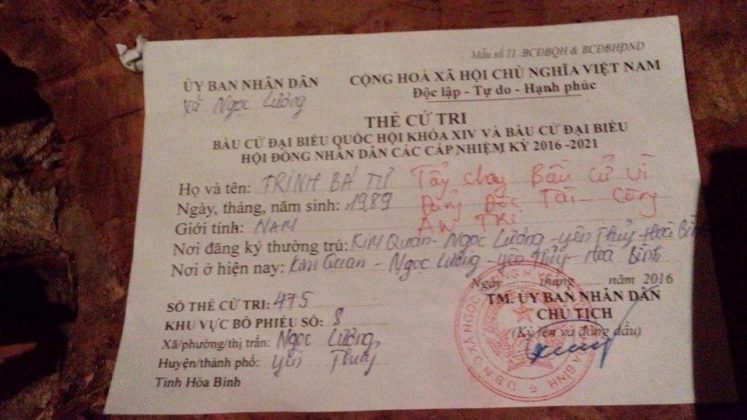 Mẫu số 11/BCĐBQH & BCĐBHĐND
ỦY BAN NHÂN DÂN
xã Ngọc Lương
CỘNG HOÀ XÃ HỘI CHỦ NGHĨA VIỆT NAM
Độc lập - Tự do - Hạnh phúc
THẺ CỬ TRI
BẦU CỬ ĐẠI BIỂU QUỐC HỘI KHÓA XIV VÀ BẦU CỬ ĐẠI BIỂU
HỘI ĐỒNG NHÂN DÂN CÁC CẤP NHIỆM KỲ 2016 -2021
Họ và tên: TRỊNH BÁ TƯ Tẩy chay Bầu cử vì
Ngày, tháng, năm sinh: 1989 Đảng Độc Tài - Cộng
Giới tính: NAM
Nơi đăng ký thường trú: KIM Quan - Ngọc Lương - yên Thủy - Hoà Bình
Nơi ở hiện nay: Kim Quan - Ngọc Lương - yên Thủy - Hoà Bình
Ngày tháng năm 2016
SỐ THẺ CỬ TRI: 475
KHU VỰC BỎ PHIẾU SỐ: 8
Xã/phường/thị trấn: Ngọc Lương
Huyện/thành phố: yên Thủy
Tỉnh Hòa Bình
TM. ỦY BAN NHÂN DÂN
CHỦ TỊCH
(Ký tên và đóng dấu)